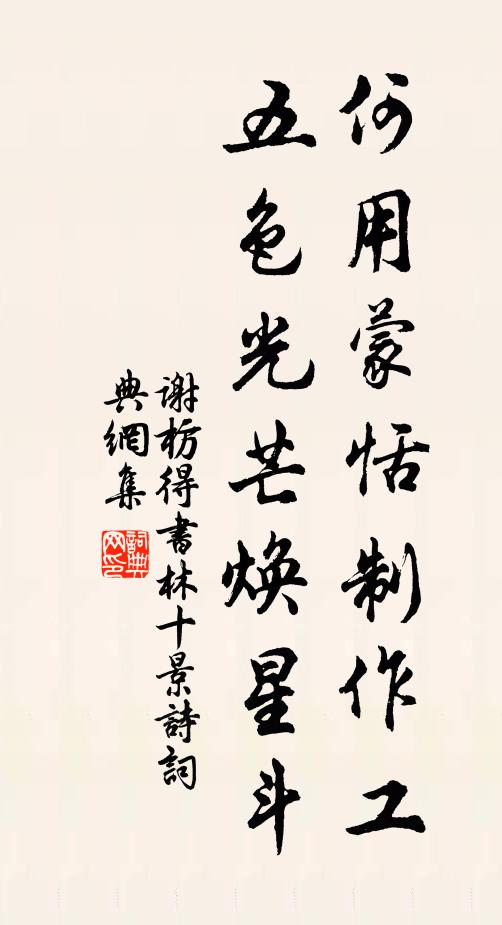 何用蒙恬制作工
五色光芒焕星斗
謝枋得書林十景詩詞
典網集
詞典网印